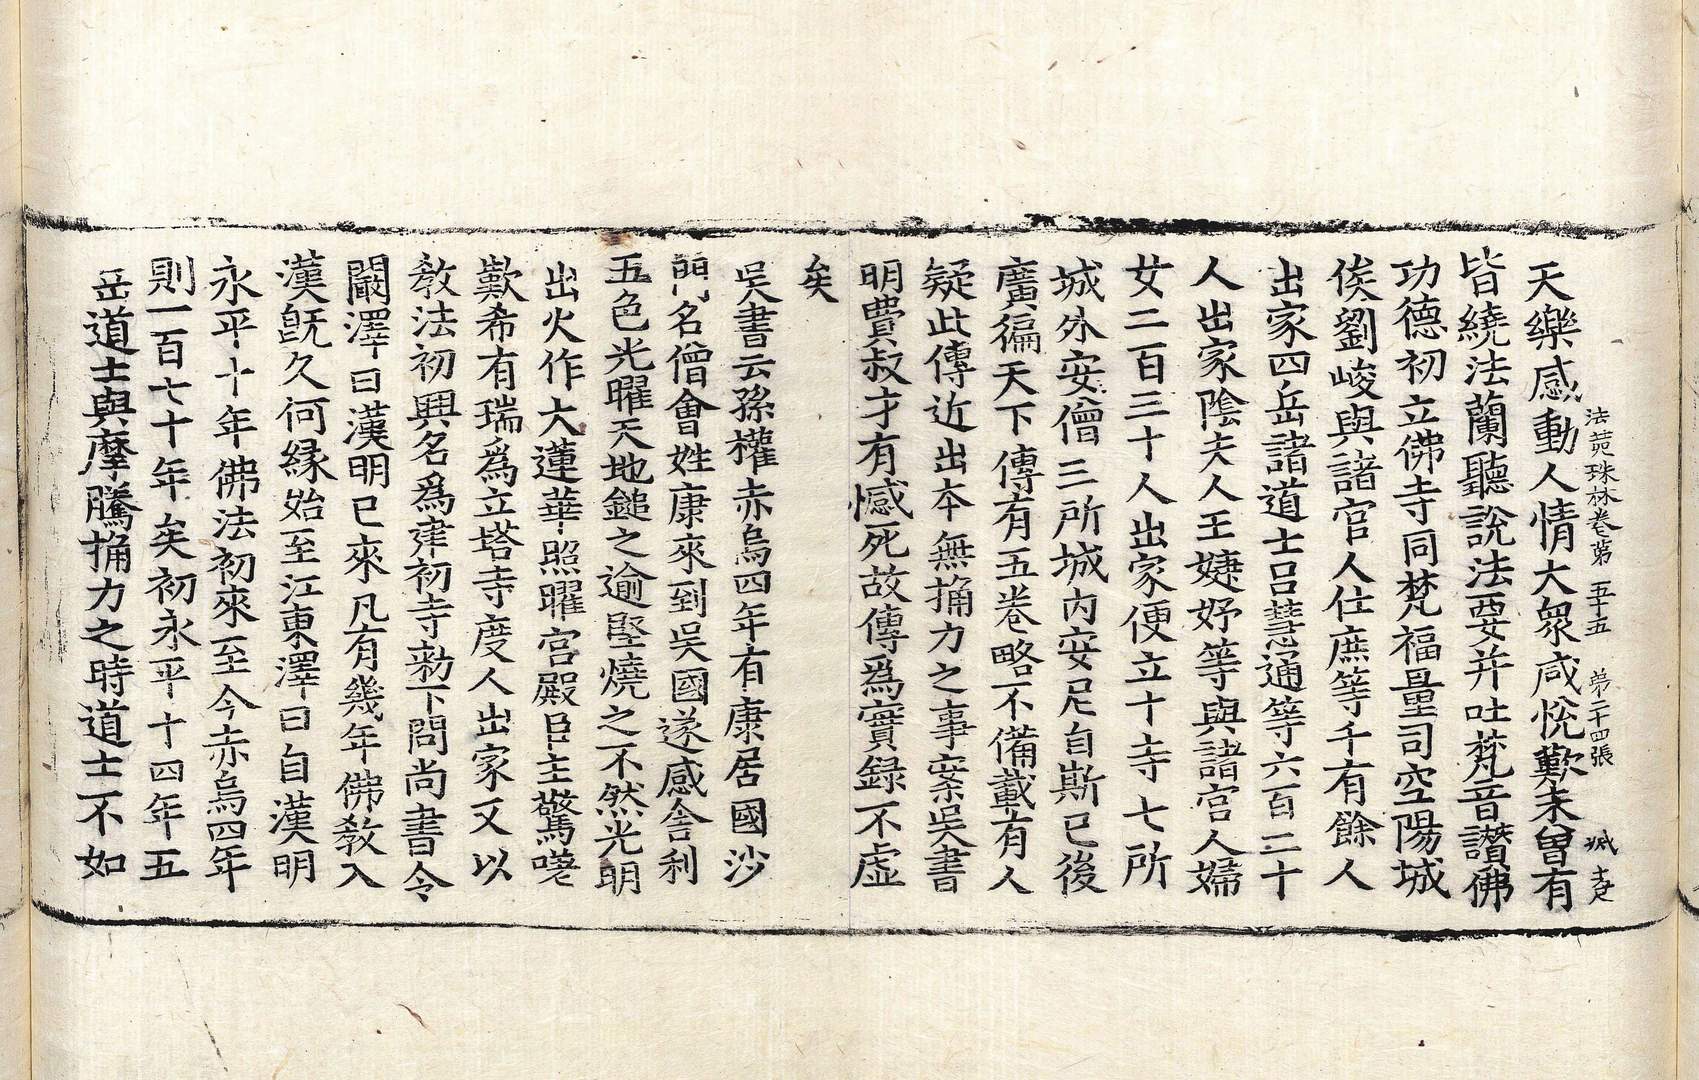 法苑珠林卷第五十五　第二十四張　城　走
天樂感動人情大衆咸悅歎未曾有
皆繞法蘭聽說法要并吐梵音讚佛
功德初立佛寺同梵福量司空陽城
侯劉峻與諸官人仕庶等千有餘人
出家四岳諸道士呂慧通等六百二十
人出家陰夫人王婕妤等與諸宮人婦
女二百三十人出家便立十寺七所
城外安僧三所城內安尼自斯已後
廣徧天下傳有五卷略不備載有人
疑此傳近出本無捔力之事案吳書
明費叔才有憾死故傳爲實録不虛
矣
吳書云孫權赤烏四年有康居國沙
門名僧會姓康來到吳國遂感舍利
五色光曜天地鎚之逾堅燒之不然光明
出火作大蓮華照曜宮殿臣主驚嗟
歎希有瑞爲立塔寺度人出家又以
教法初興名爲建初寺勑下問尚書令
闞澤曰漢明已來凡有幾年佛教入
漢旣久何緣始至江東澤曰自漢明
永平十年佛法初來至今赤烏四年
則一百七十年矣初永平十四年五
岳道士與摩騰捔力之時道士不如